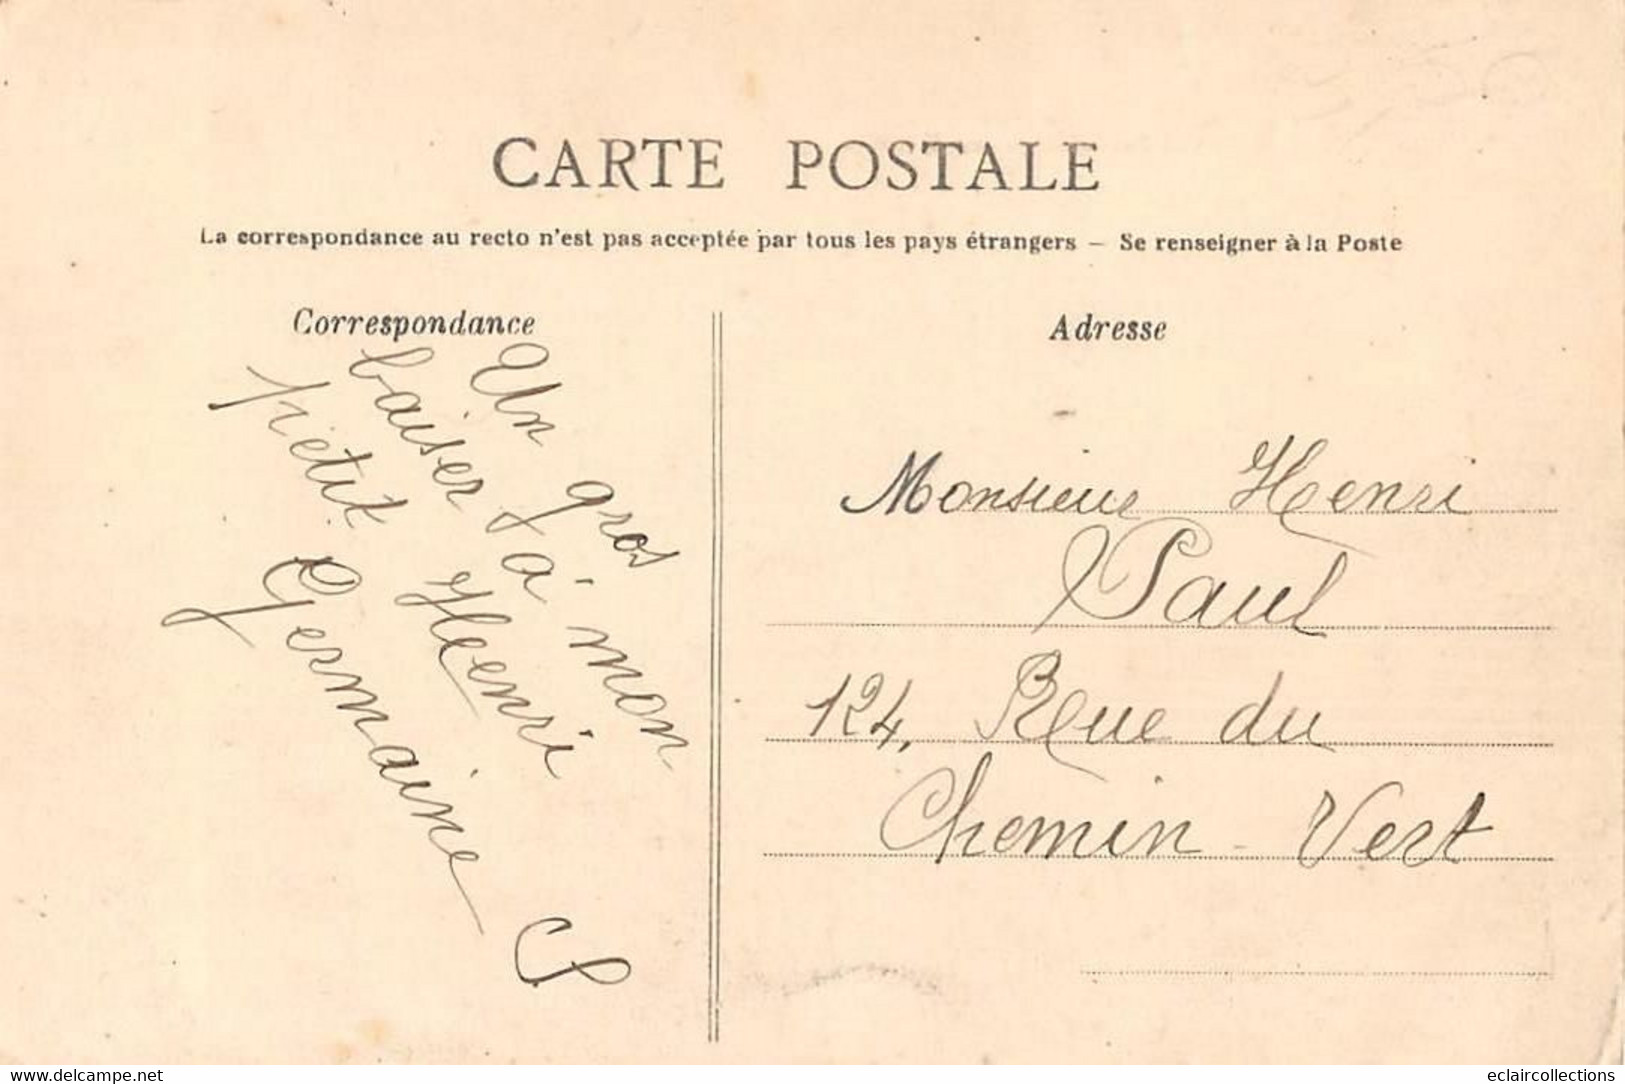 CARTE POSTALE
La correspondance au recto n'est pas acceptée par tous les pays étrangers – Se renseigner à la Poste
Correspondance
Un gros
baiser à mon
petit Henri
Germaine
Adresse
Monsieur Henri
Paul
124, Rue du
Chemin-Vert
www.delcampe.net
eclaircollections